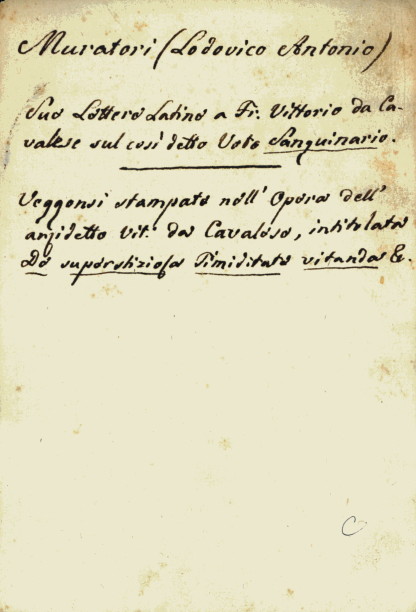 Muratori (Lodovico Antonio)
Sue Lettere Latine a Fr. Vittorio da Ca-
valese sul così detto Voto Sanguinario.
Veggonsi stampate nell' Opera dell'
anzidetto Vit.º da Cavalese, intitolata
De superstiziosa Timiditate vitanda &.
C